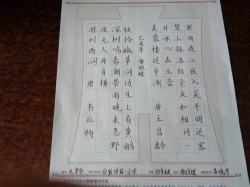 寒雨连江夜入吴平明送客
楚山孤洛阳亲友如相问一
片冰心在玉壶
芙蓉楼送辛渐 唐 王昌龄
独怜幽草涧边生上有黄鹂
深树鸣春潮带雨晚来急野
渡无人舟自横
滁州西涧 唐 韦应物